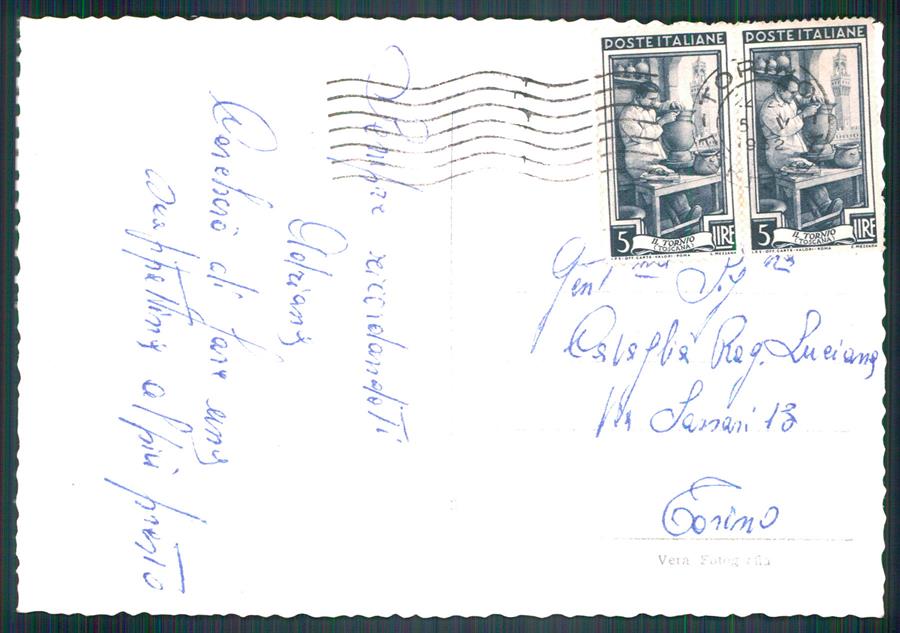 Sempre ricordandoti
Adriana
Cercherò di fare una
scappatina al più presto
POSTE ITALIANE
5 LIRE
IL TORNIO
(TOSCANA)
I.P.S.-OFF. CARTE-VALORI-ROMA
E. MEZZANA
POSTE ITALIANE
5 LIRE
IL TORNIO
(TOSCANA)
I.P.S.-OFF. CARTE-VALORI-ROMA
E. MEZZANA
Gent.ma Sig.na
Rag. Luciana
Via Sassari 13
Torino
Vera Fotografia